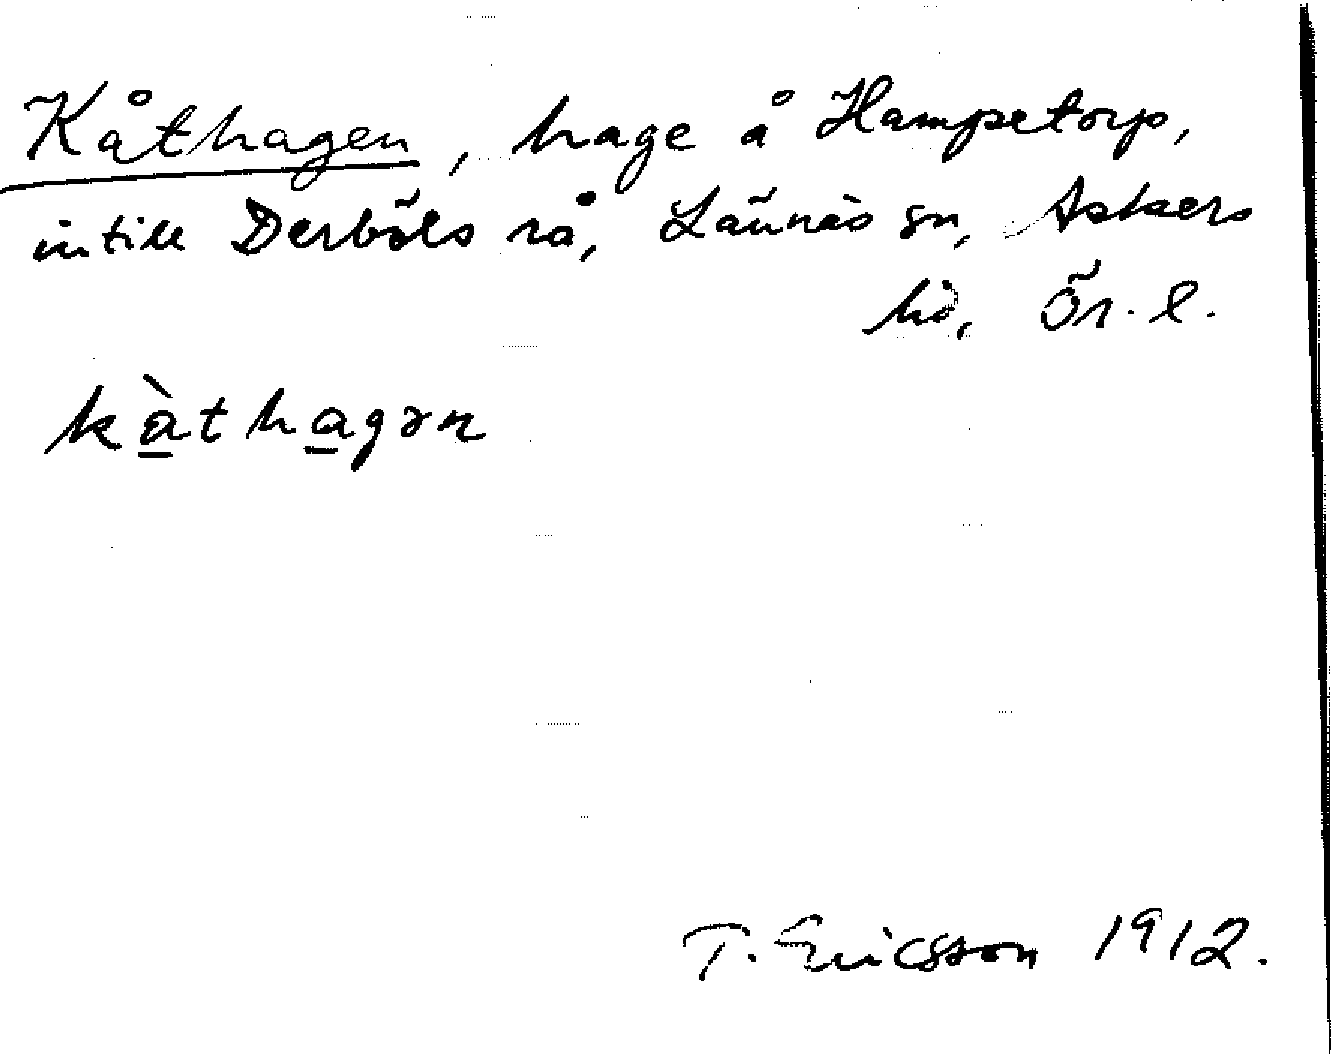 Kåthagen, hage å Hampetorp,
intill Derböls rå, Lännäs sn, Askers
hd, Ör. l.
kàthagən
T. Ericsson 1912.